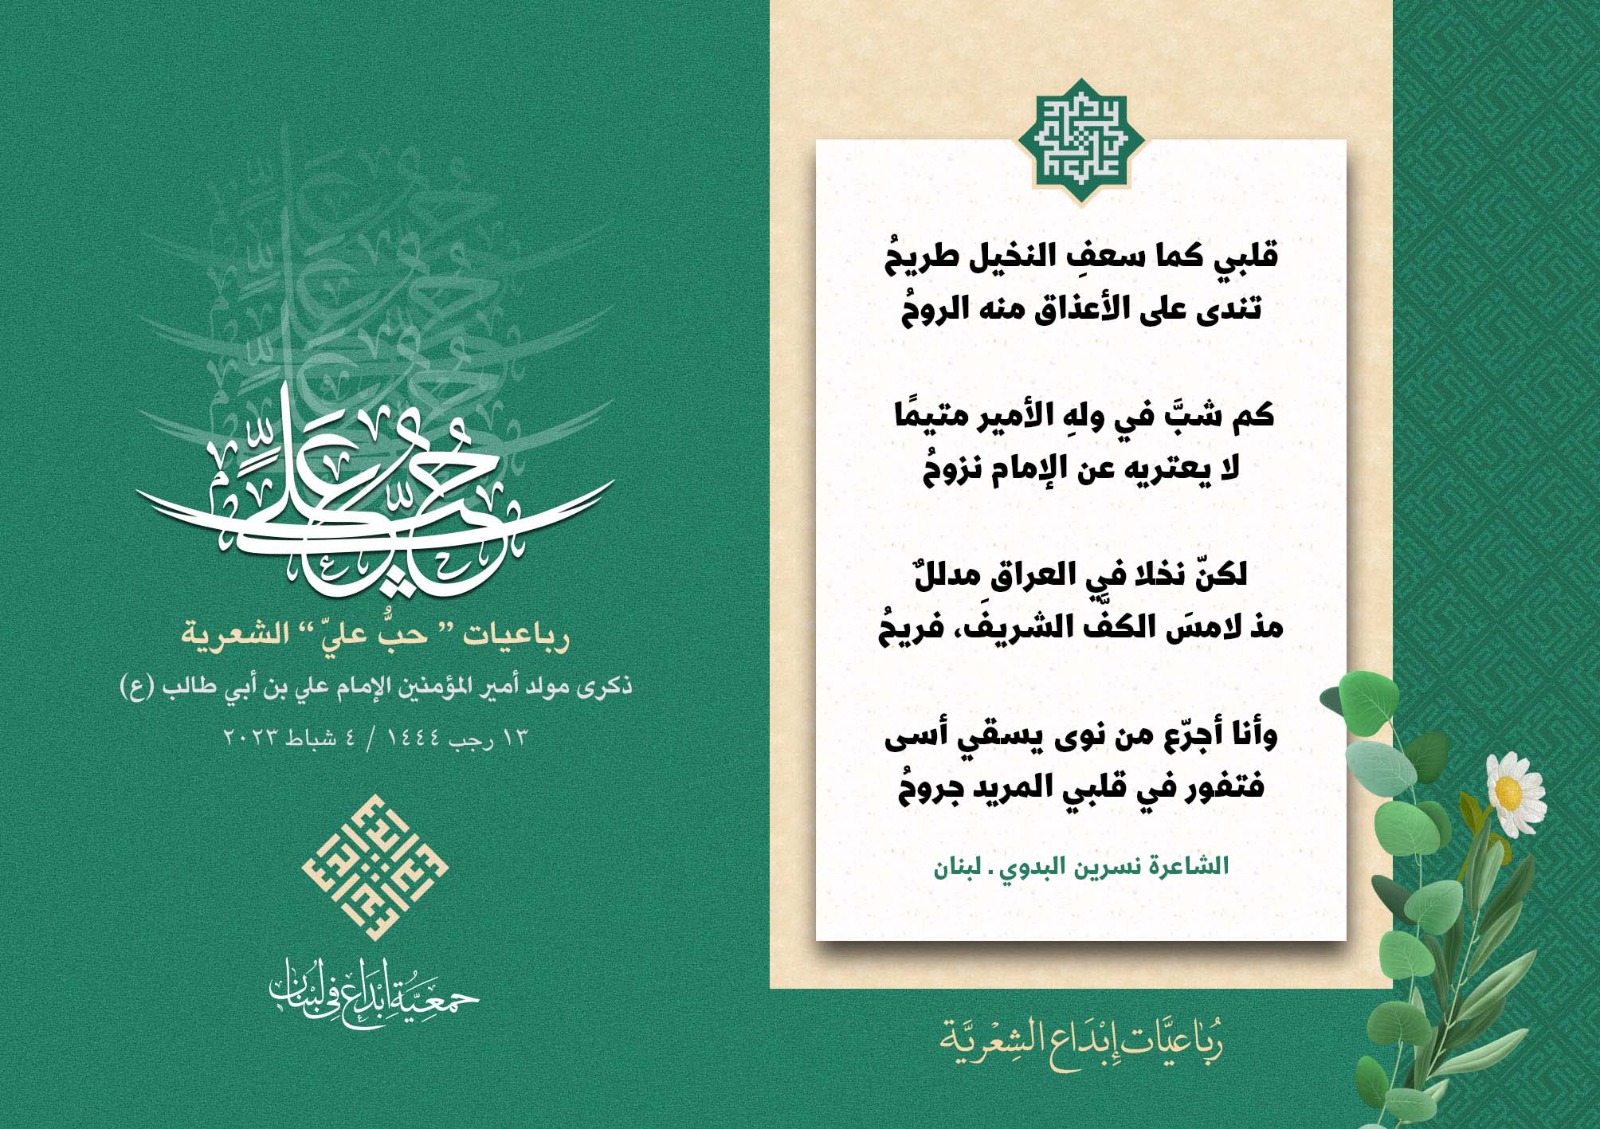 قلبي كما سعفِ النخيل طريحُ
تندى على الأعذاق منه الروحُ
كم شبَّ في ولهِ الأمير متيمًا
لا يعتريه عن الإمام نزوحُ
لكنّ نخلا في العراقِ مدللٌ
مذ لامسَ الكفَّ الشريفَ، فريحُ
وأنا أجرّع من نوى يسقي أسى
فتفور في قلبي المريد جروحُ
الشاعرة نسرين البدوي . لبنان
رُبَاعيَّات إِبْدَاع الشِعْريَّة
حُبُّ عَلِيٍّ
رباعيات " حبُّ عليّ " الشعرية
ذكرى مولد أمير المؤمنين الإمام علي بن أبي طالب (ع)
١٣ رجب ١٤٤٤ / ٤ شباط ٢٠٢٣
جمعيّة إبْداع في لبْنان